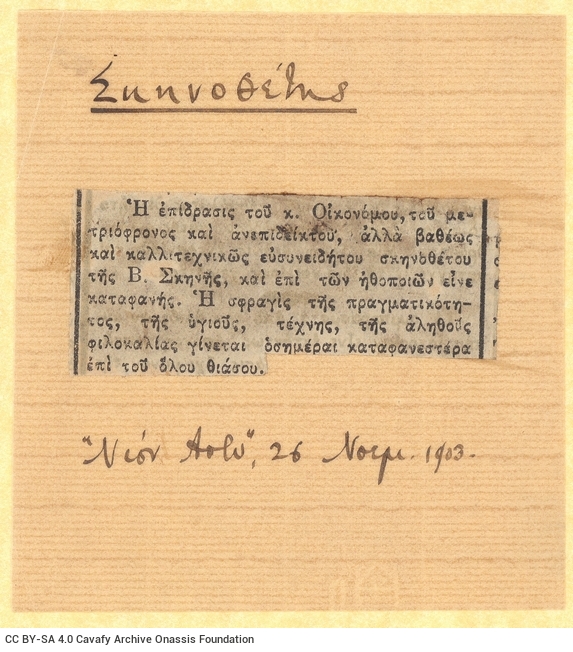 Σκηνοθέτης
Ἡ ἐπίδρασις τοῦ κ. Οἰκονόμου, τοῦ με-
τριόφρονος καὶ ἀνεπιδείκτου, ἀλλὰ βαθέως
καὶ καλλιτεχνικῶς εὐσυνειδήτου σκηνοθέτου
τῆς Β. Σκηνῆς, καὶ ἐπὶ τῶν ἠθοποιῶν εἶνε
καταφανής. Ἡ σφραγὶς τῆς πραγματικότη-
τος, τῆς ὑγιοῦς, τέχνης, τῆς ἀληθοῦς
φιλοκαλίας γίνεται ὁσημέραι καταφανεστέρα
ἐπὶ τοῦ ὅλου θιάσου.
"Νέον Άστυ", 26 Νοεμ. 1903.
CC BY-SA 4.0 Cavafy Archive Onassis Foundation